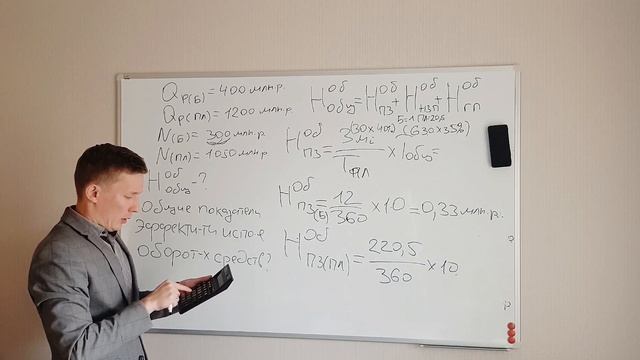 Qр(Б) = 400 млн.р.
Qр(пл) = 1200 млн.р.
N(Б) = 300 млн.р.
N(пл) = 1050 млн.р.
Н об общ - ?
Общие показатели
эффекти-ти испол
оборот-х средств?
Н об общ = Н об пз + Н об нзп + Н об гп
Н об пз = (30х40%) Змi (630х35%) / Тпл х tобщ =
Н об пз(Б) = 12/360 х 10 = 0,33 млн.р.
Н об пз(пл) = 220,5/360 х 10